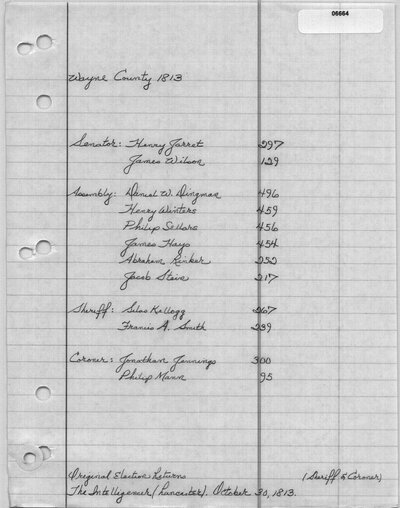 06664
Wayne County 1813
Senator: Henry Jarret 297
James Wilson 129
Assembly: Daniel W. Dingman 496
Henry Winters 459
Philip Sellers 456
James Hays 454
Abraham Rinker 252
Jacob Stein 217
Sheriff: Silas Kellogg 267
Francis A. Smith 239
Coroner: Jonathan Jennings 300
Philip Mann 95
Original Election Returns (Sheriff & Coroner)
The Intelligencer (Lancaster). October 30, 1813.